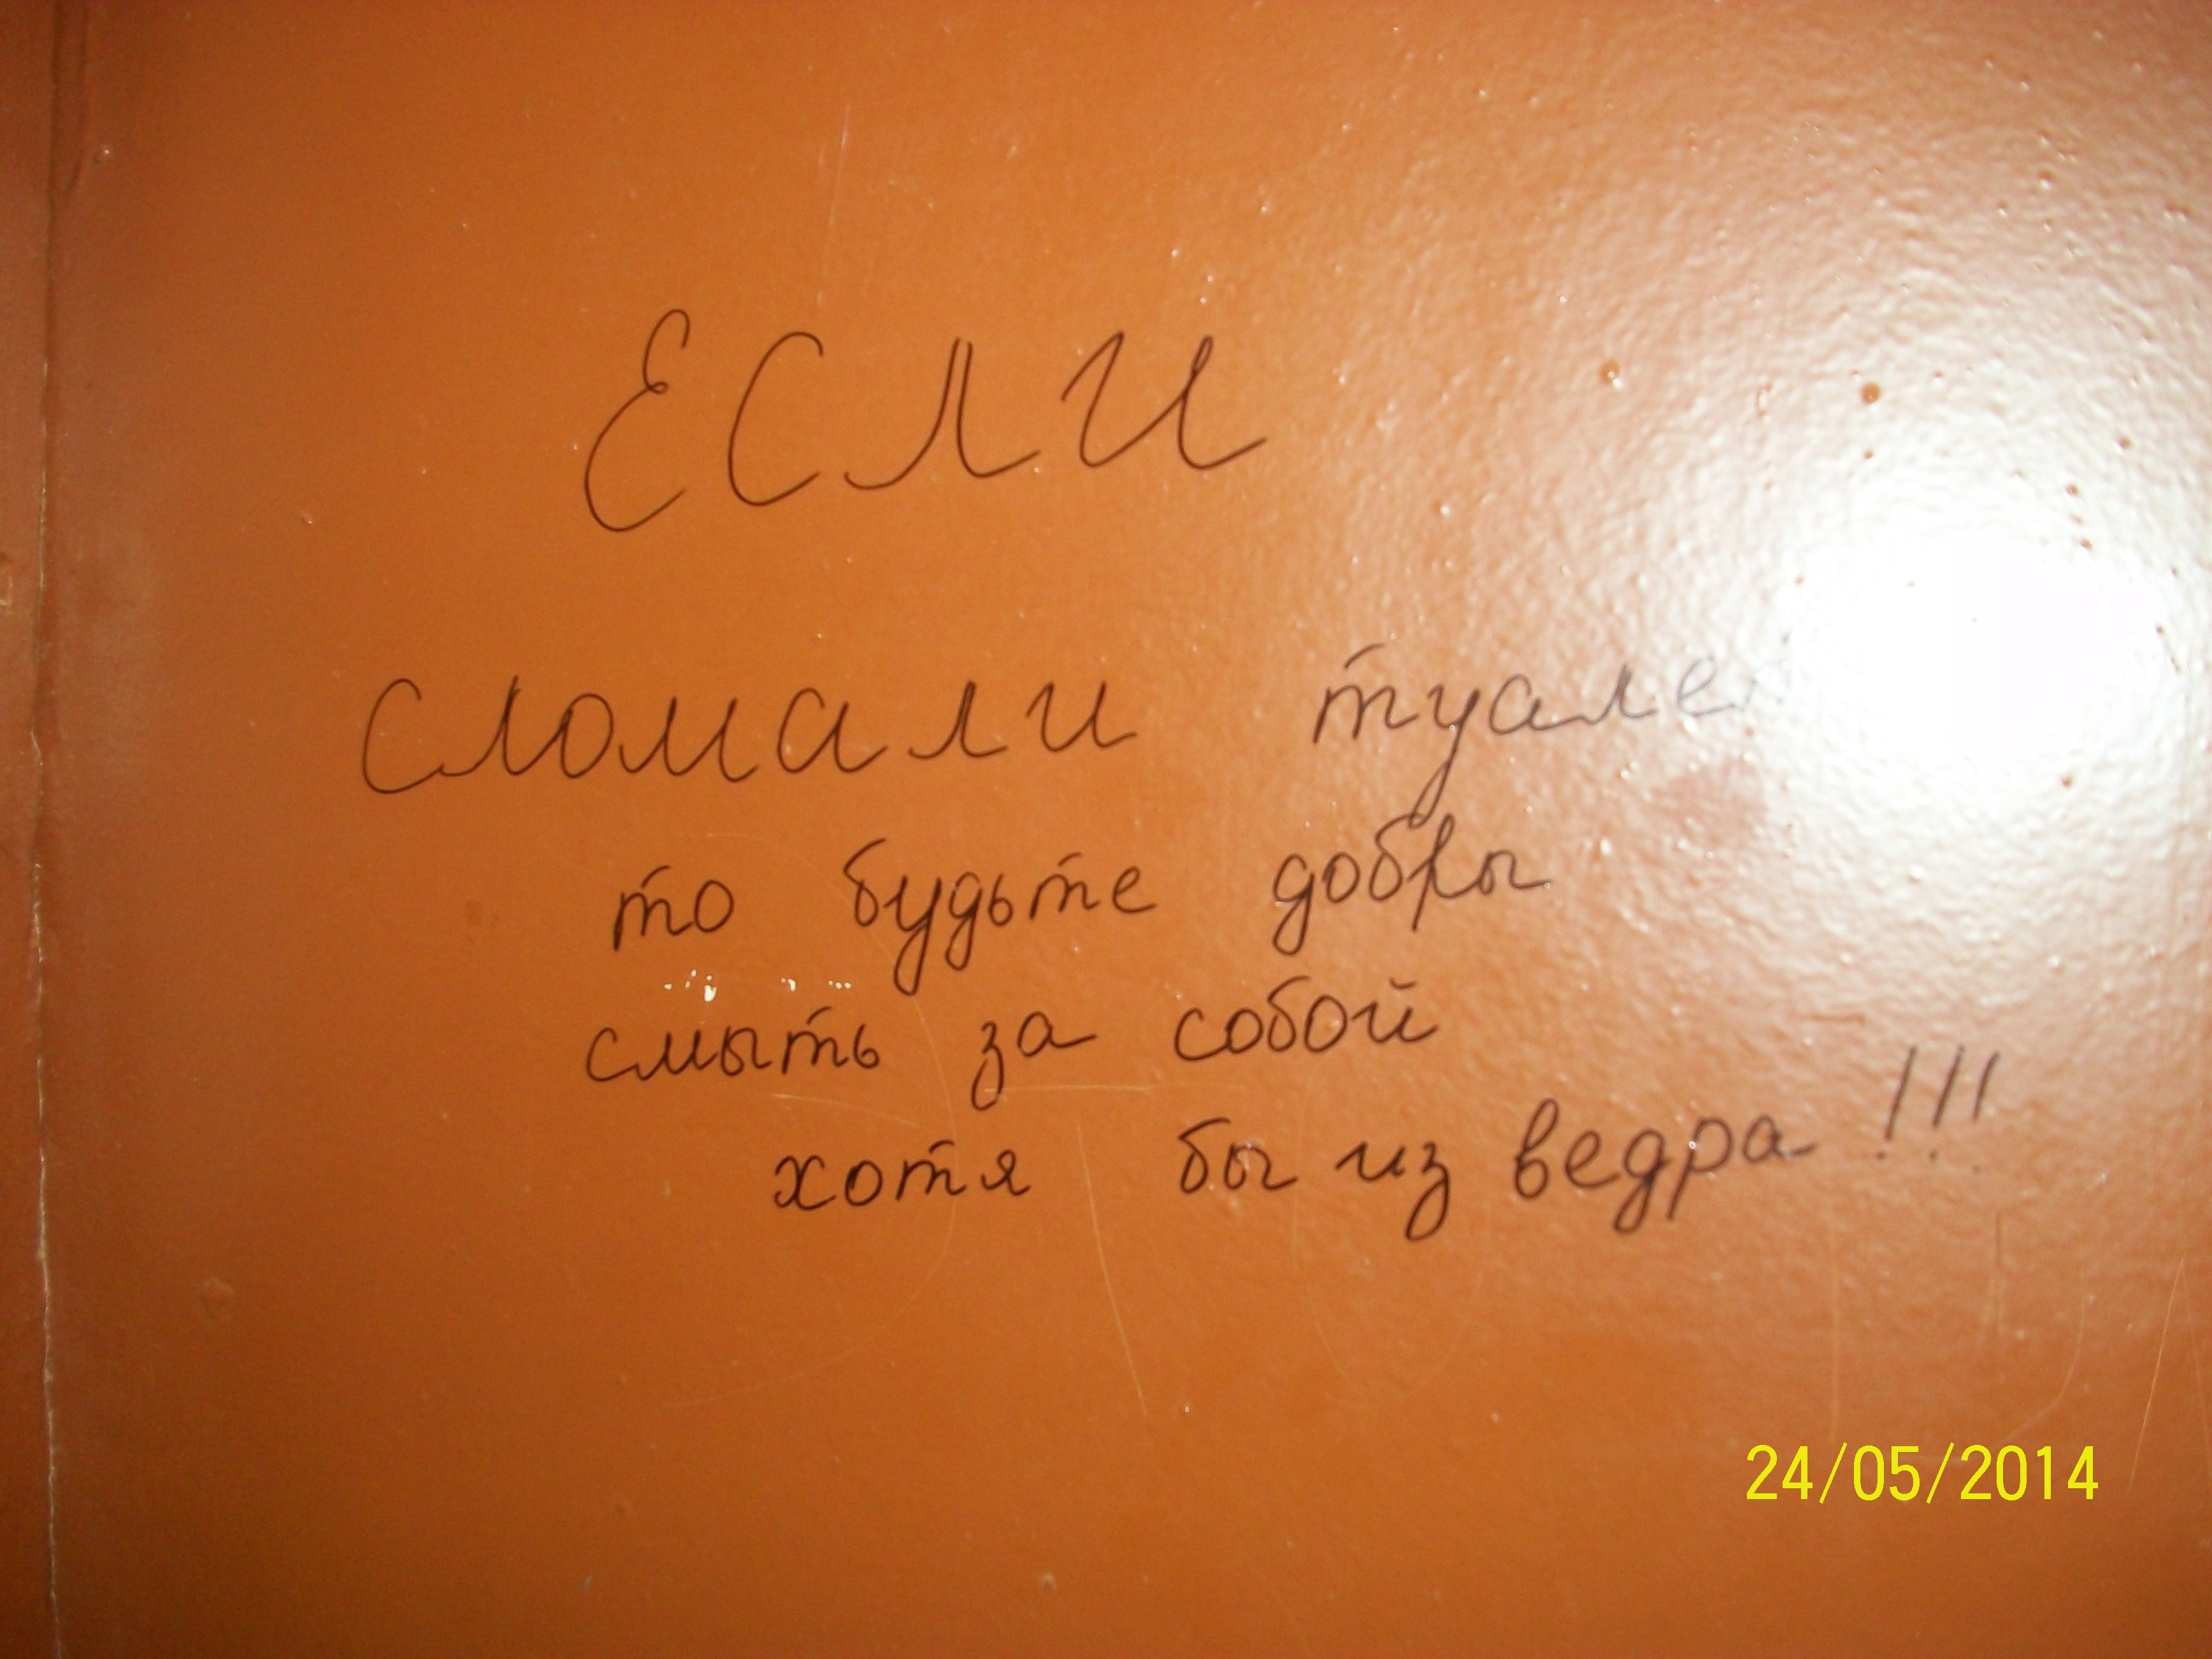 ЕСЛИ
сломали туалет
то будьте добры
смыть за собой
хотя бы из ведра !!!
24/05/2014